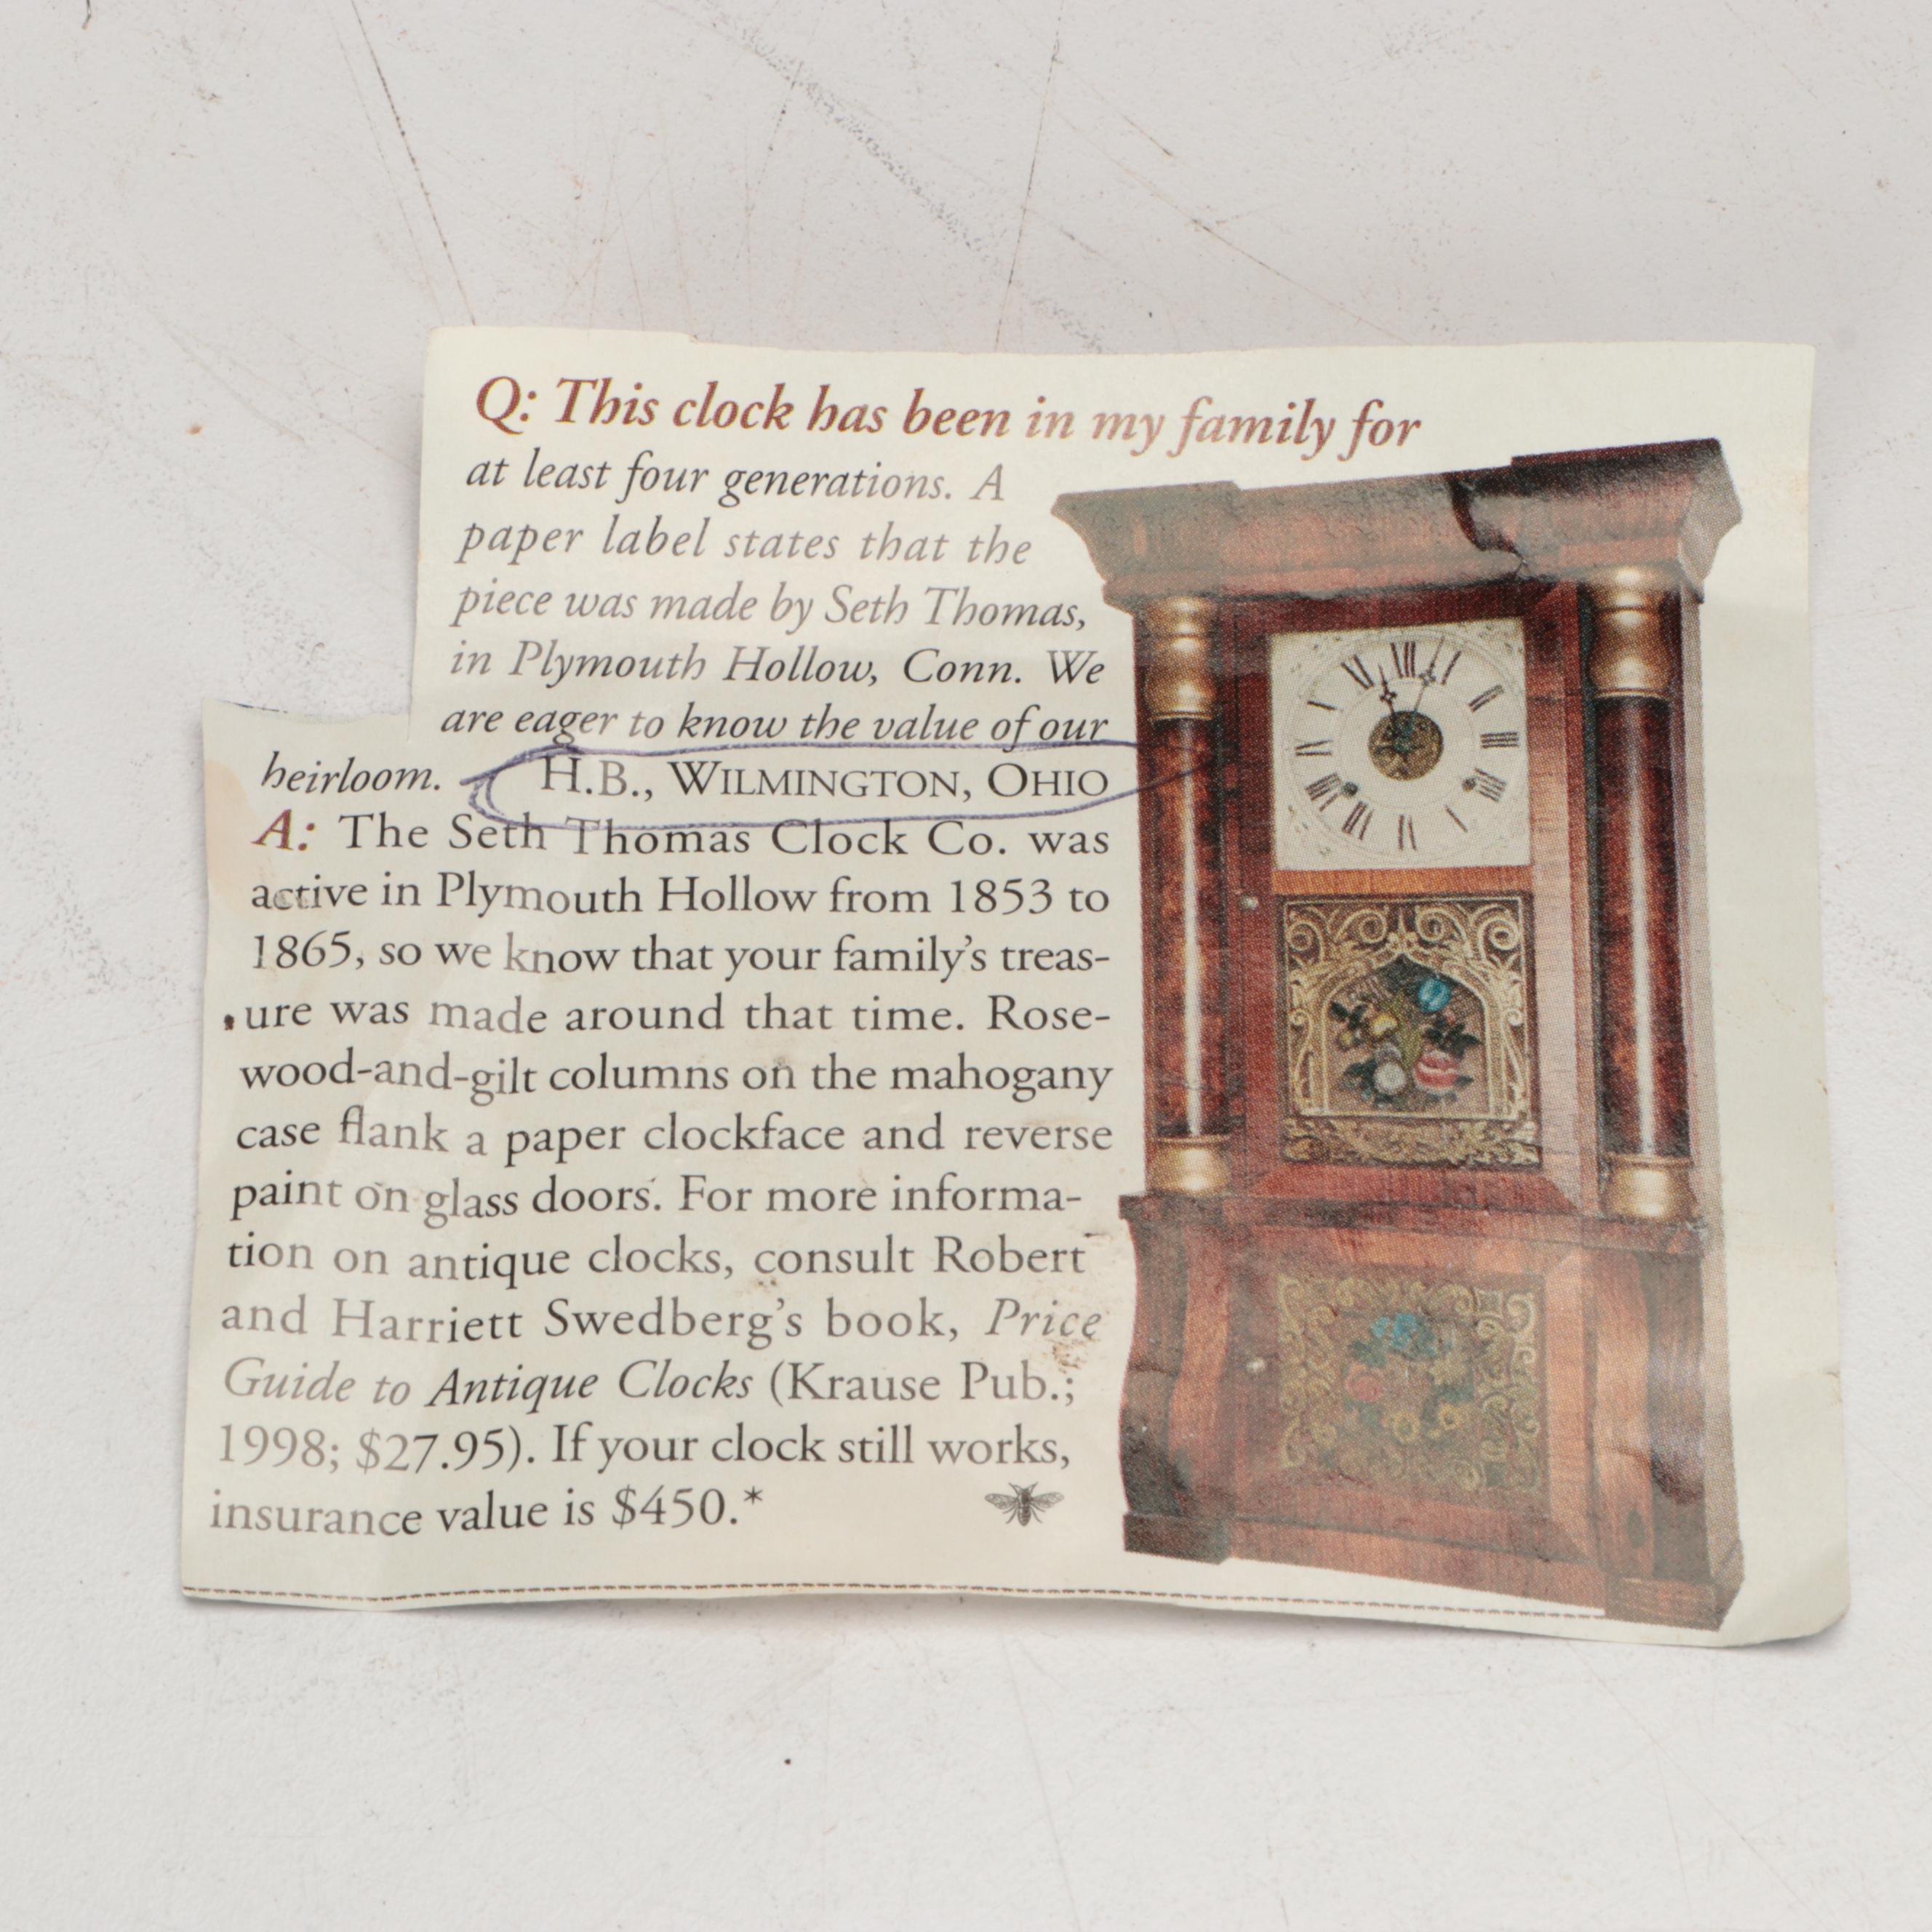 Q: This clock has been in my family for
at least four generations. A
paper label states that the
piece was made by Seth Thomas,
in Plymouth Hollow, Conn. We
are eager to know the value of our
heirloom. H.B., WILMINGTON, OHIO
A: The Seth Thomas Clock Co. was
active in Plymouth Hollow from 1853 to
1865, so we know that your family's treas-
ure was made around that time. Rose-
wood-and-gilt columns on the mahogany
case flank a paper clockface and reverse
paint on glass doors. For more informa-
tion on antique clocks, consult Robert
and Harriett Swedberg's book, Price
Guide to Antique Clocks (Krause Pub.;
1998; $27.95). If your clock still works,
insurance value is $450.*